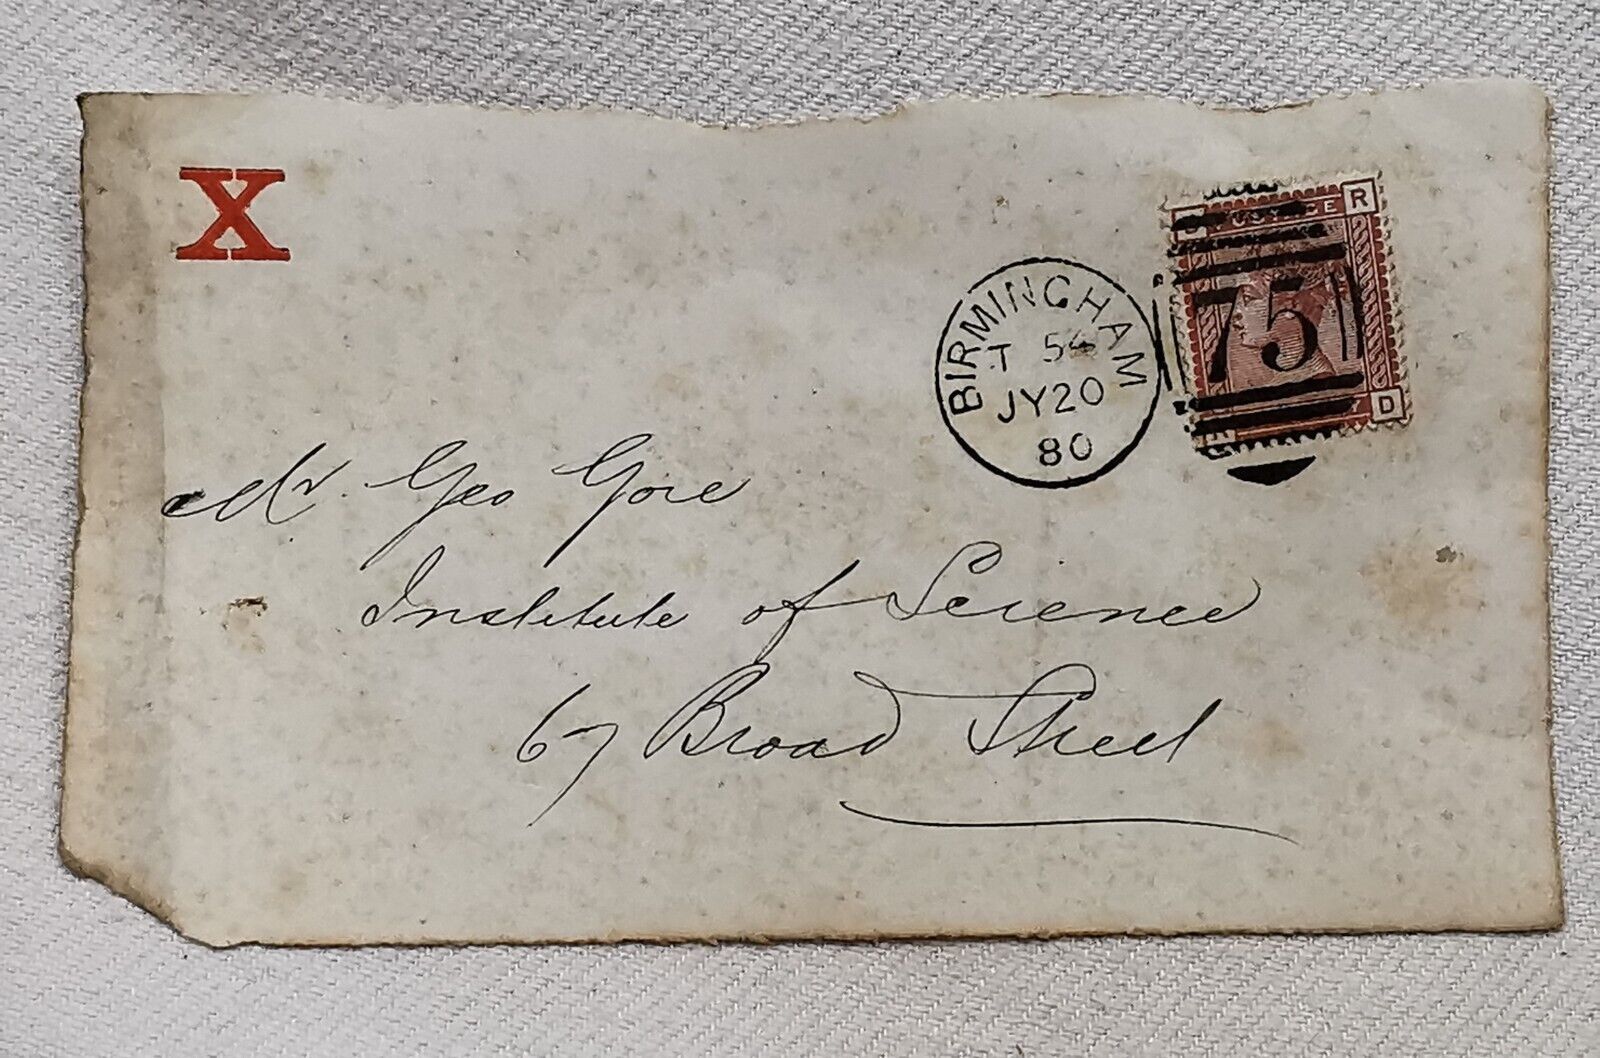 X
BIRMINGHAM
T 54
JY 20
80
75
R
D
Mr. Geo Gore
Institute of Science
67 Broad Street